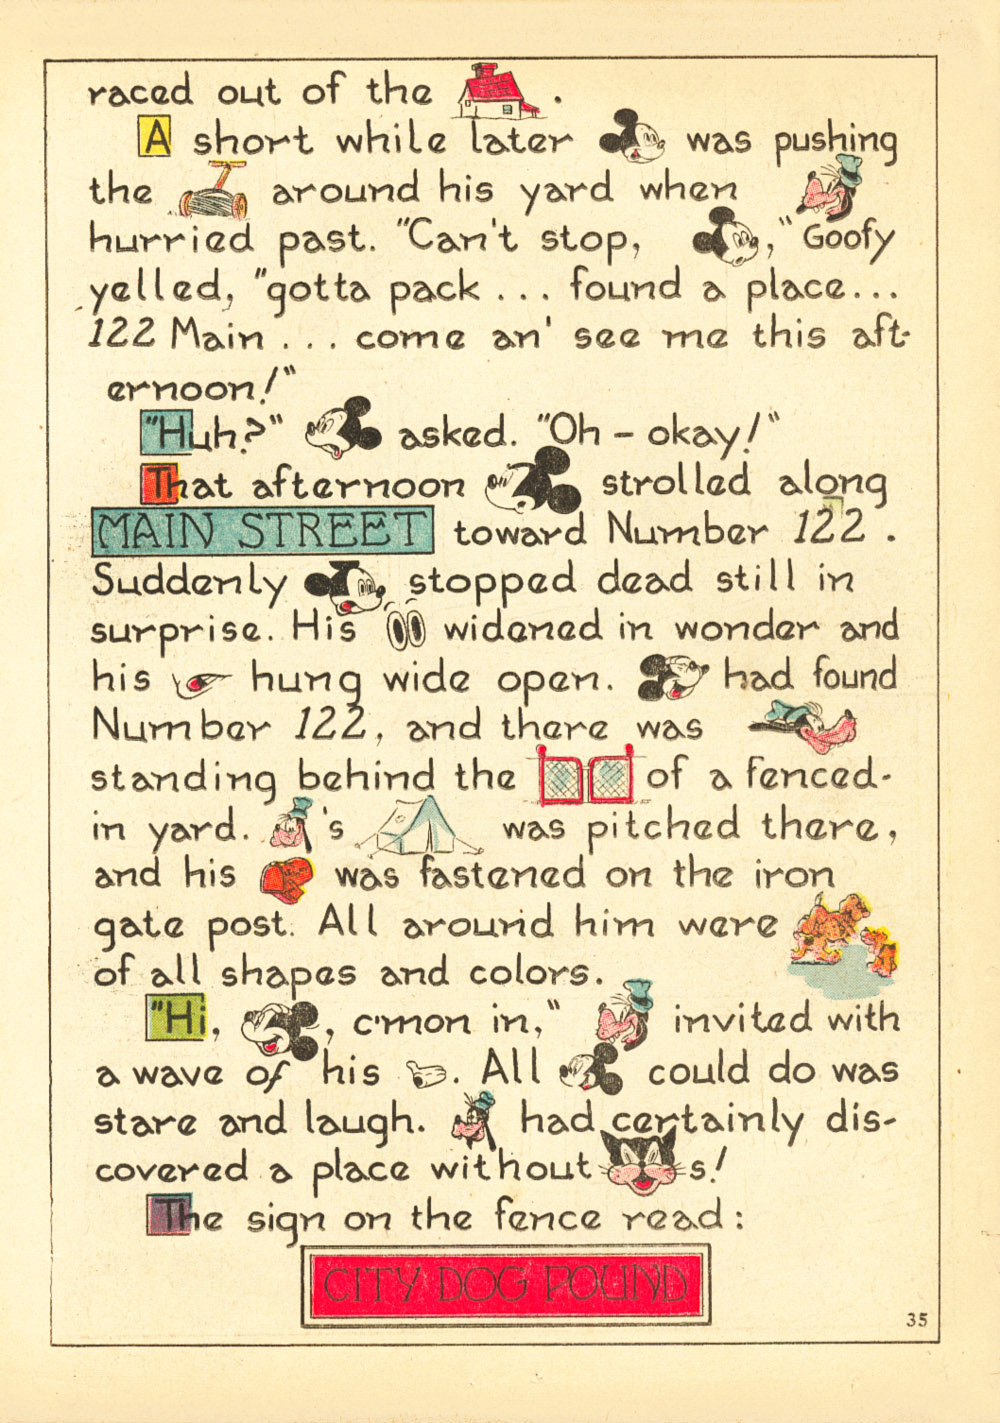 raced out of the .
A short while later was pushing
the around his yard when
hurried past. "Can't stop, ," Goofy
yelled, "gotta pack ... found a place...
122 Main ... come an' see me this aft-
ernoon!"
"Huh?" asked. "Oh - okay!"
That afternoon strolled along
MAIN STREET toward Number 122 .
Suddenly stopped dead still in
surprise. His widened in wonder and
his hung wide open. had found
Number 122, and there was
standing behind the of a fenced-
in yard. 's was pitched there,
and his was fastened on the iron
gate post. All around him were
of all shapes and colors.
"Hi, , c'mon in," invited with
a wave of his . All could do was
stare and laugh. had certainly dis-
covered a place without s!
The sign on the fence read:
CITY DOG POUND
35